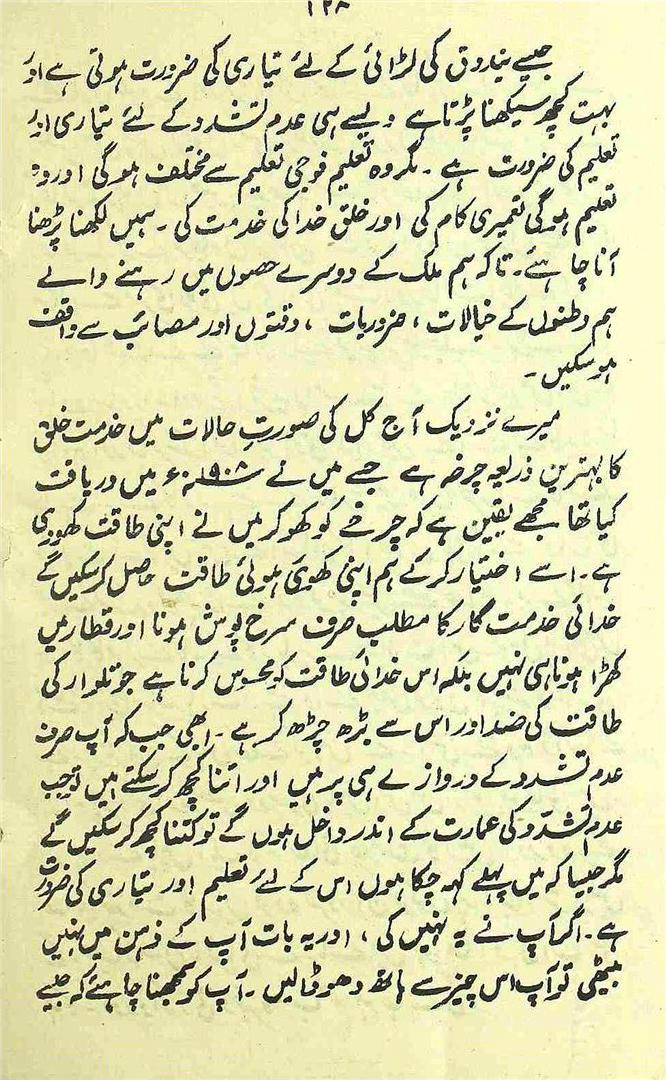 ۱۲۸
جیسے بندوق کی لڑائی کے لئے تیاری کی ضرورت ہوتی ہے اور
بہت کچھ سیکھنا پڑتا ہے ویسے ہی عدم تشدد کے لئے تیاری اور
تعلیم کی ضرورت ہے ۔ مگر وہ تعلیم فوجی تعلیم سے مختلف ہوگی اور وہ
تعلیم ہوگی تعمیری کام کی اور خلق خدا کی خدمت کی ۔ ہمیں لکھنا پڑھنا
آنا چاہئے۔ تاکہ ہم ملک کے دوسرے حصوں میں رہنے والے
ہم وطنوں کے خیالات ، ضروریات ، دقتوں اور مصائب سے واقف
ہو سکیں ۔
میرے نزدیک آج کل کی صورتِ حالات میں خدمت خلق
کا بہترین ذریعہ چرخہ ہے جسے میں نے ۱۹۰۸ء میں دریافت
کیا تھا مجھے یقین ہے کہ چرخے کو کھو کر ہمیں نے اپنی طاقت کھو دی
ہے ۔ اسے اختیار کر کے ہم اپنی کھوئی ہوئی طاقت حاصل کر سکیں گے
خدائی خدمت گار کا مطلب صرف سرخ پوش ہونا اور قطار میں
کھڑا ہونا ہی نہیں بلکہ اس خدائی طاقت کو محسوس کرنا ہے جو تلوار کی
طاقت کی ضد اور اس سے بڑھ چڑھ کر ہے ۔ ابھی جب کہ آپ صرف
عدم تشدد کے دروازے ہی پر ہیں اور اتنا کچھ کر سکتے ہیں تو جب
عدم تشدّد کی عمارت کے اندر داخل ہوں گے تو کتنا کچھ کر سکیں گے
مگر جیسا کہ میں پہلے کہہ چکا ہوں اس کے لئے تعلیم اور تیاری کی ضرورت
ہے ۔ اگر آپ نے یہ نہیں کی ، اور یہ بات آپ کے ذہن میں نہیں
بیٹھی تو آپ اس چیز سے ہاتھ دھو ڈالیں ۔ آپ کو سمجھنا چاہئے کہ جیسے